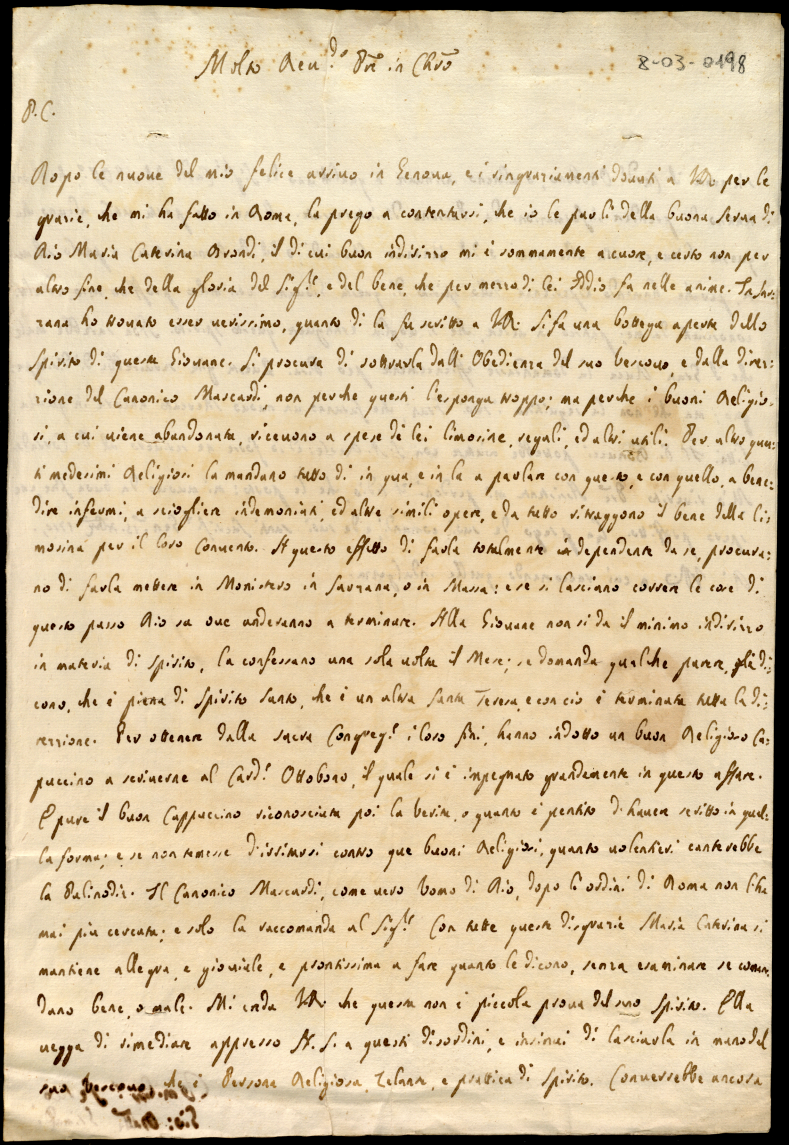 Molto Reu.do Pre in Chro
8-03-0198
P. C.
Dopo le nuoue del mio felice arriuo in Genoua, e i ringraziamenti douuti a VR per le
grazie, che mi ha fatto in Roma, la prego a contentarsi, che io le parli della buona Serua di
Dio Maria Caterina Brondi, il di cui buon indirizzo mi è sommamente a cuore, e certo non per
altro fine, che della gloria del Sig.re, e del bene, che per mezzo di lei Iddio fa nelle anime. In Sar:
zana ho trouato esser uerissimo, quanto di la fu scritto a VR. Si fa una bottega aperta dello
Spirito di questa Giouane. Si procura di sottrarla dall' Obedienza del suo Vescouo, e dalla dire:
zione del Canonico Mascardi, non perche questi l'esponga troppo; ma perche i buoni Religio:
si, a cui uiene abandonata, riceuono a spese di lei limosine, regali, ed altri utili. Per altro ques:
ti medesimi Religiosi la mandano tutto di in qua, e in la a parlare con questo, e con quello, a bene:
dire infermi, a sciogliere indemoniati ed altre simili opere, e da tutto ritraggono il bene della li:
mosina per il loro Conuento. A questo effetto di farla totalmente independente da se, procura:
no di farla mettere in Monistero in Sarzana, o in Massa: e se si lasciano correre le cose di
questo passo Dio sa oue anderanno a terminare. Alla Giouane non si da il minimo indirizzo
in materia di Spirito, la confessano una sola uolta il Mese; se domanda qualche parere, gli di:
cono, che è piena di Spirito Santo, che è un altra Santa Teresa, e con ciò è terminata tutta la di:
rezzione. Per ottenere dalla sacra Congreg.e i loro fini, hanno indotto un buon Religioso Ca:
puccino a scriuerne al Card.l Ottobono, il quale si è impegnato grandemente in questo affare.
E pure il buon Cappuccino riconosciuta poi la Verità, o quanto è pentito d'hauer scritto in quel:
la forma; e se non temesse d'irritarsi contro que buoni Religiosi, quanto uolentieri canterebbe
la Palinodia. Il Canonico Mascardi, come uero Uomo di Dio, dopo li ordini di Roma non l'ha
mai più cercata; e solo la raccomanda al Sig.re Con tutte queste disgrazie Maria Caterina si
mantiene allegra, e giouiale, e prontissima a fare quanto le dicono, senza esaminare se coman:
dano bene, o male. Mi creda VR che questa non è piccola proua del suo Spirito. Ella
uegga di rimediare appresso N. S. a questi disordini, e insinui di lasciarla in mano del
suo Vescouo, che è Persona Religiosa, Zelante, e prattica di Spirito. Conuerrebbe ancora